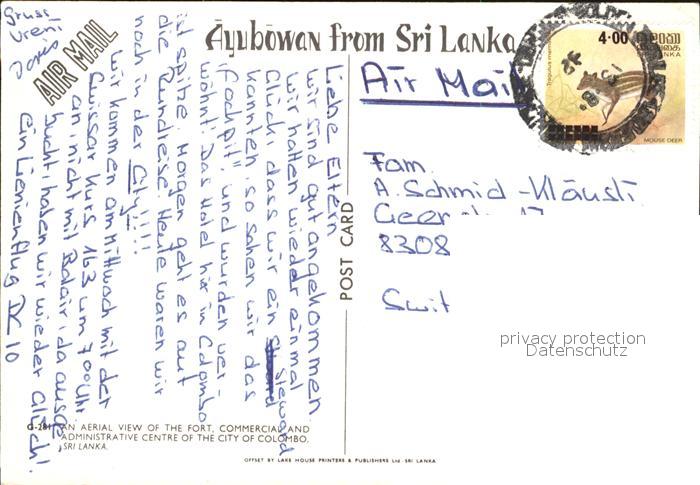 Āyubōwan from Sri Lanka
AIR MAIL
Liebe Eltern
wir sind gut angekommen.
wir hatten wieder einmal
Glück, dass wir ein Steward
kannten, so sahen wir das
"Cockpit", und wurden ver-
wöhnt! Das Hotel hir in Colombo
ist spitze. Morgen geht es auf
die Rundreise. Heute waren wir
noch in der City!!!!
wir kommen am Mittwoch mit der
Swissar Kurs 163 um 700 Uhr
an, nicht mit Balair, da ausge-
bucht, haben wir wieder Glück!
ein Lienienflug DC 10
Gruss
Vreni
Air Mail
Fam.
A. Schmid - Kläusli
8308
Swit
4·00
ශ්‍රී ලංකා
இலங்கை
SRI LANKA
MOUSE DEER
POST CARD
privacy protection
Datenschutz
G-281 AN AERIAL VIEW OF THE FORT, COMMERCIAL AND
ADMINISTRATIVE CENTRE OF THE CITY OF COLOMBO,
SRI LANKA.
OFFSET BY LAKE HOUSE PRINTERS & PUBLISHERS Ltd · SRI LANKA